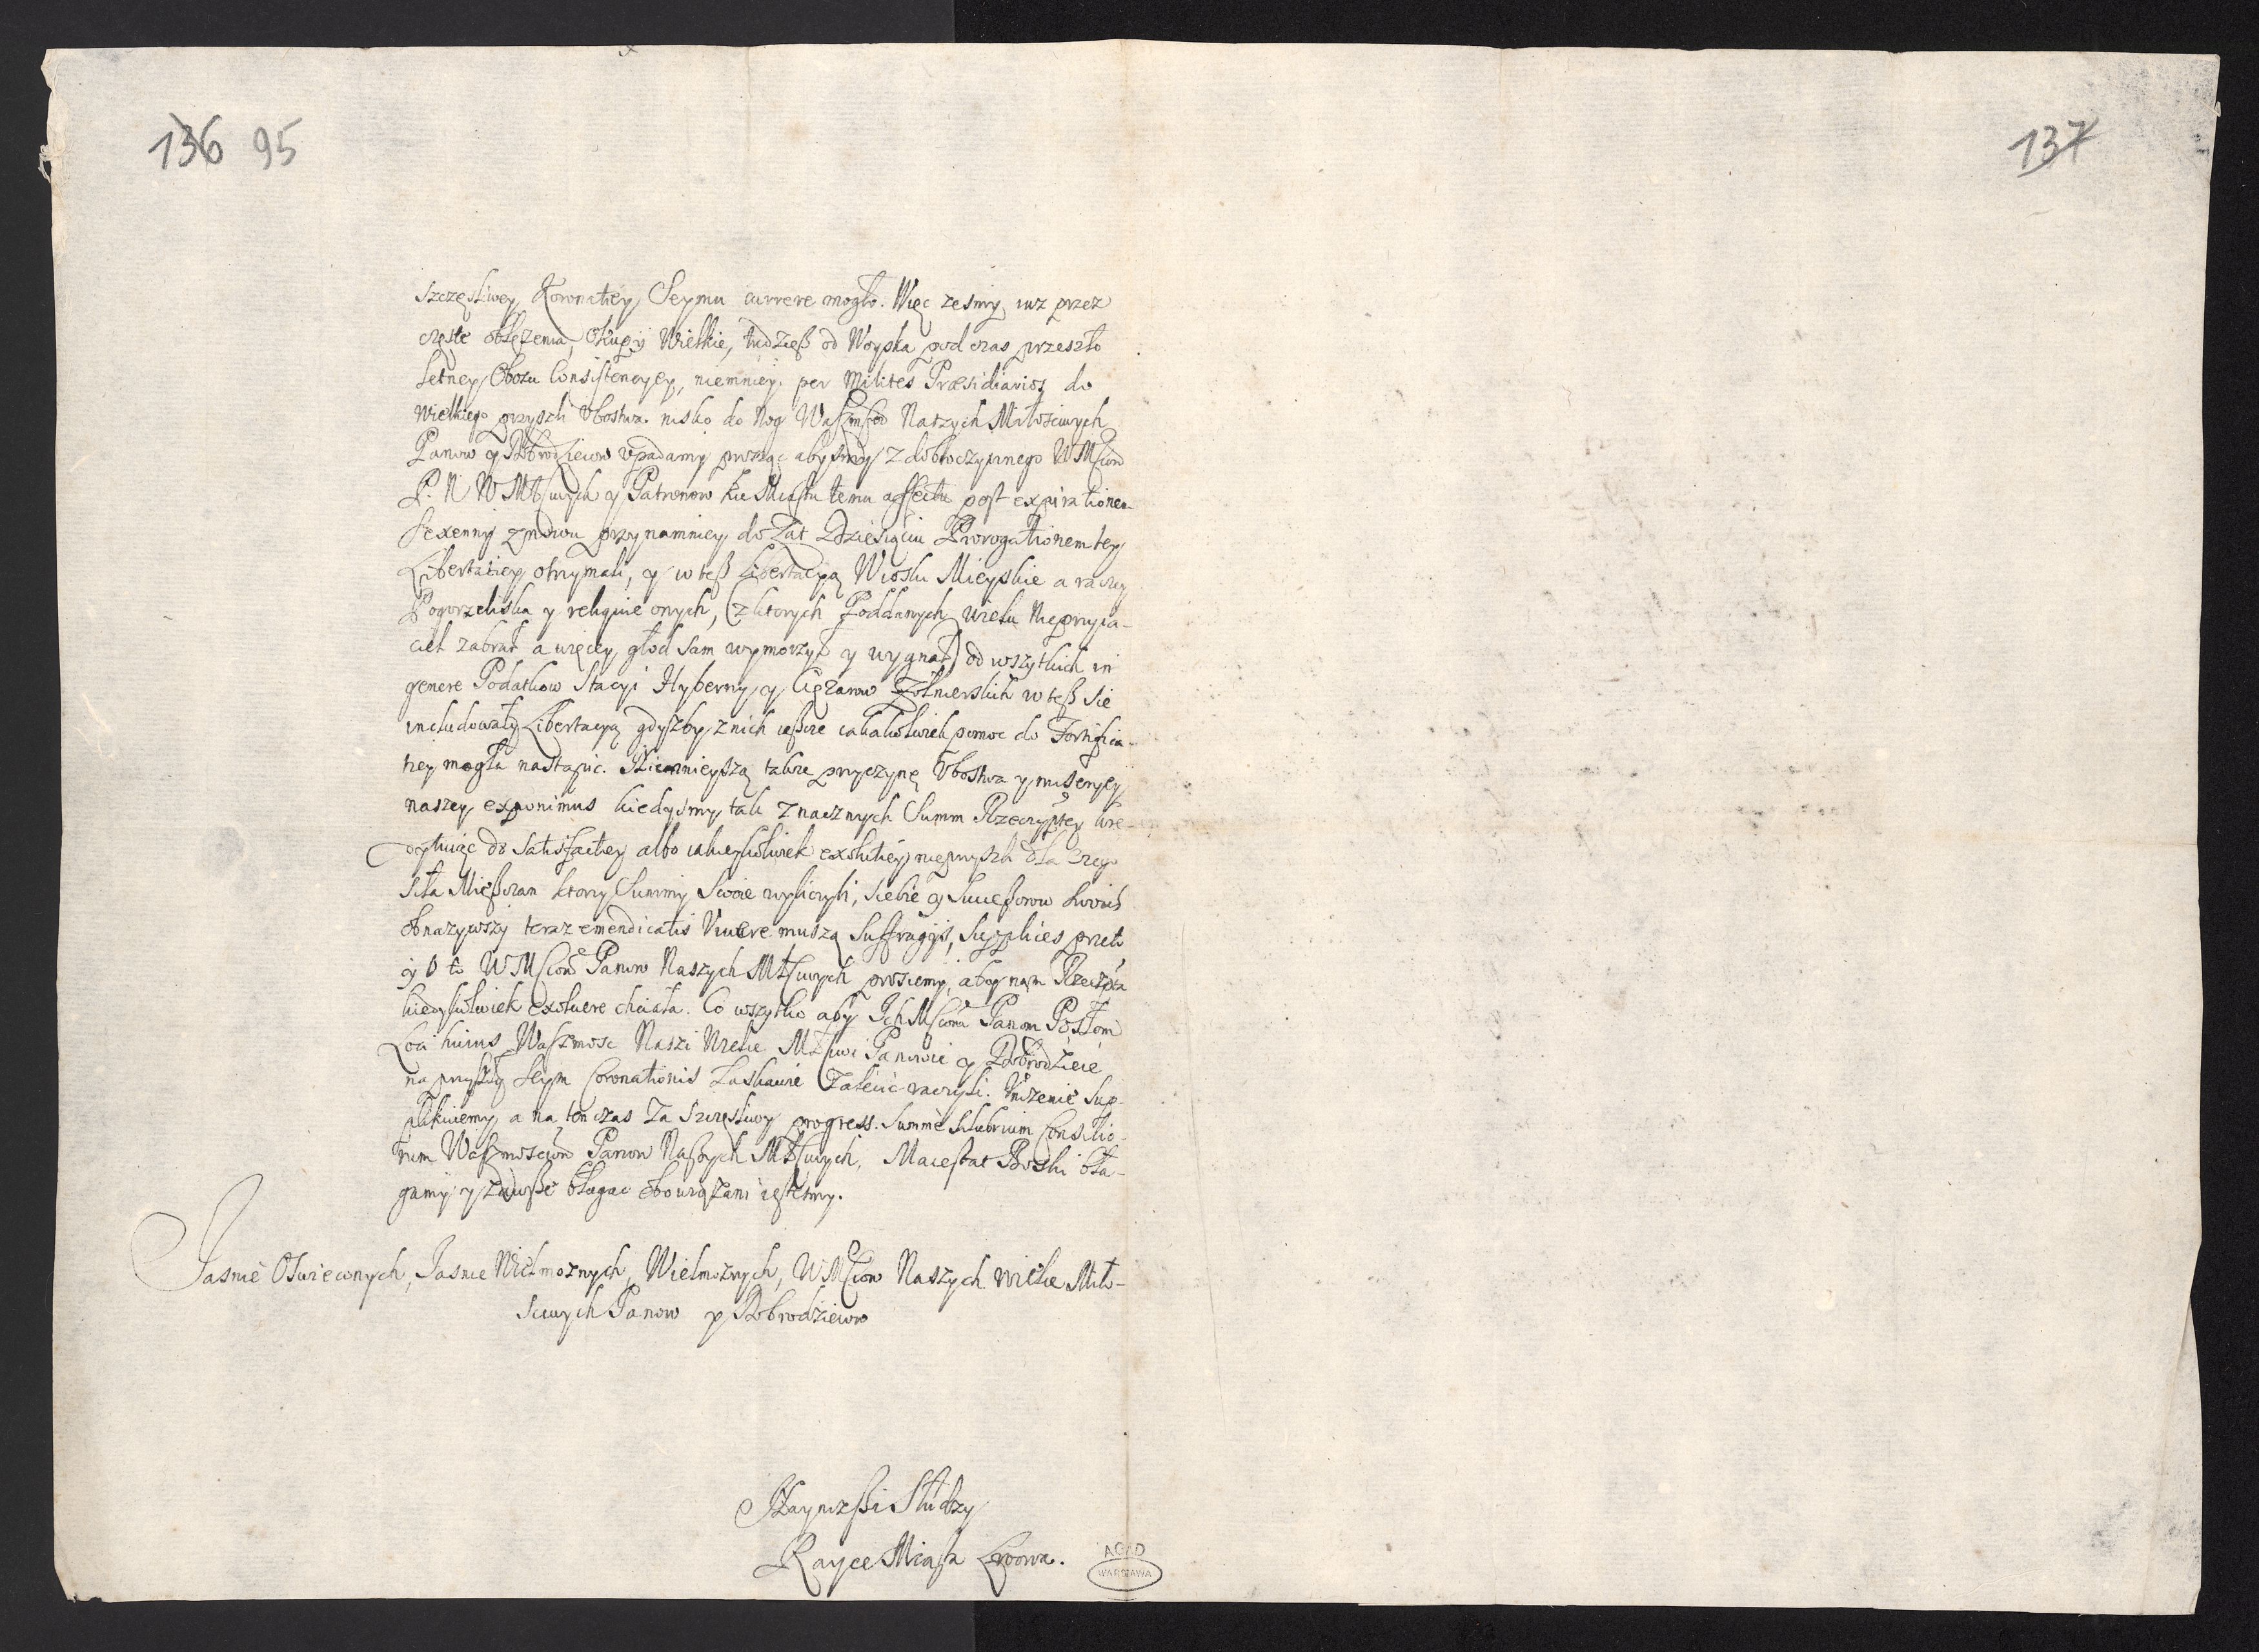 136 95
137
szczęsliwey Koronatiey Seymu currere mogło. Więc ześmy iuz przez
częste oblęzenia, Okupÿ Wielkie, tudzieß od Woyska pod czas przeszło
letney Obozu Consistencyey, niemniey per Milites Præsidiarios do
wielkiego przyszli Vbostwa. nisko do Nog Waszmsciow Naszych Miłosciwych
Panow y Dobrodzieiow vpadamy prosząc abysmy z dobroczynnego WMsciow
P. N WMłsciwych y Patronow ku Miastu temu affectu post expirationem
sexennij znowu przynamniey do Lat Dziesiąciu Prorogationem tey
Libertatiey otrzymali, y w teß Libertacyą Wioski Mieyskie a raczey
Pogorzeliska y reliquie onych, (z ktorych Poddanych wielu Nieprzyia-
ciel zabrał a więcey głod sam wymorzył y wygnał) od wszytkich in
genere Podatkow Stacyi Hyberny y Cięzarow Zołnierskich w teß sie
includowały Libertacyą gdyszby z nich ießcze iakakolwiek pomoc do Fortifica-
tiey mogła nastąpic. Niemnieyszą takze przyczynę Vbostwa y miseryey
naszey exponimus kiedysmy tak znacznych Summ Rzeczyptey kre-
dytuiąc do satisfactiey albo iakieykolwiek exolutiey nie przyszli dla czego
siła Mießczan ktorzy Summy swoie wyliczyli, siebie y Sucessorow swoich
obnazywszy teraz emendicatis Vivere muszą suffragijs, supplices przeto
y o to WMsciow Panow Naszych Młsciwych prosiemy, aby nam Rzeczpta
kiedyskolwiek exoluere chciała. Co wszytko aby Ich Msciom Panom Posłom
Loci huius Waszmosc Naszi Wielce Młsciwi Panowie y Dobrodzieie
na przyszły Seym Coronationis Łaskawie Zalecic raczyli. Vnizenie sup-
plikuiemy, a na ten czas za szczesliwy progress. summè salubrium Consilio-
rum Waszmosciow Panow Naßzych Młsciwych, Maiestat Boski bła-
gamy y zawsze błagac obowiązani iestesmy.
Jasnie Oswieconych, Jasnie Wielmoznych, Wielmoznych, WMsciow Naszych wielce Miło-
sciwych Panow y Dobrodzieiow
Naynizßi Słudzy
Rayce Miasta Lwowa.
AGAD
WARSZAWA